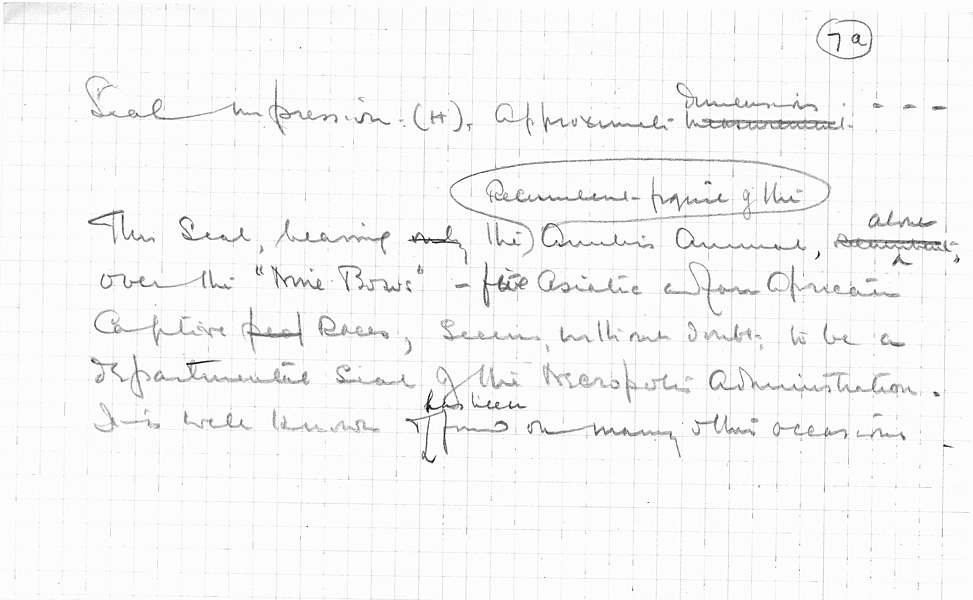 7a
Seal impression. (H). Approximate measurement dimensions . - - -
Recumbent figure of the
This Seal, bearing only the) Anubis Animal, recumbent, alone
over the "Nine Bows" - five Asiatic and four African
Captive Races, seems, without doubt, to be a
departmental Seal of the Necropolis Administration.
It is well known & has been found on many other occasions